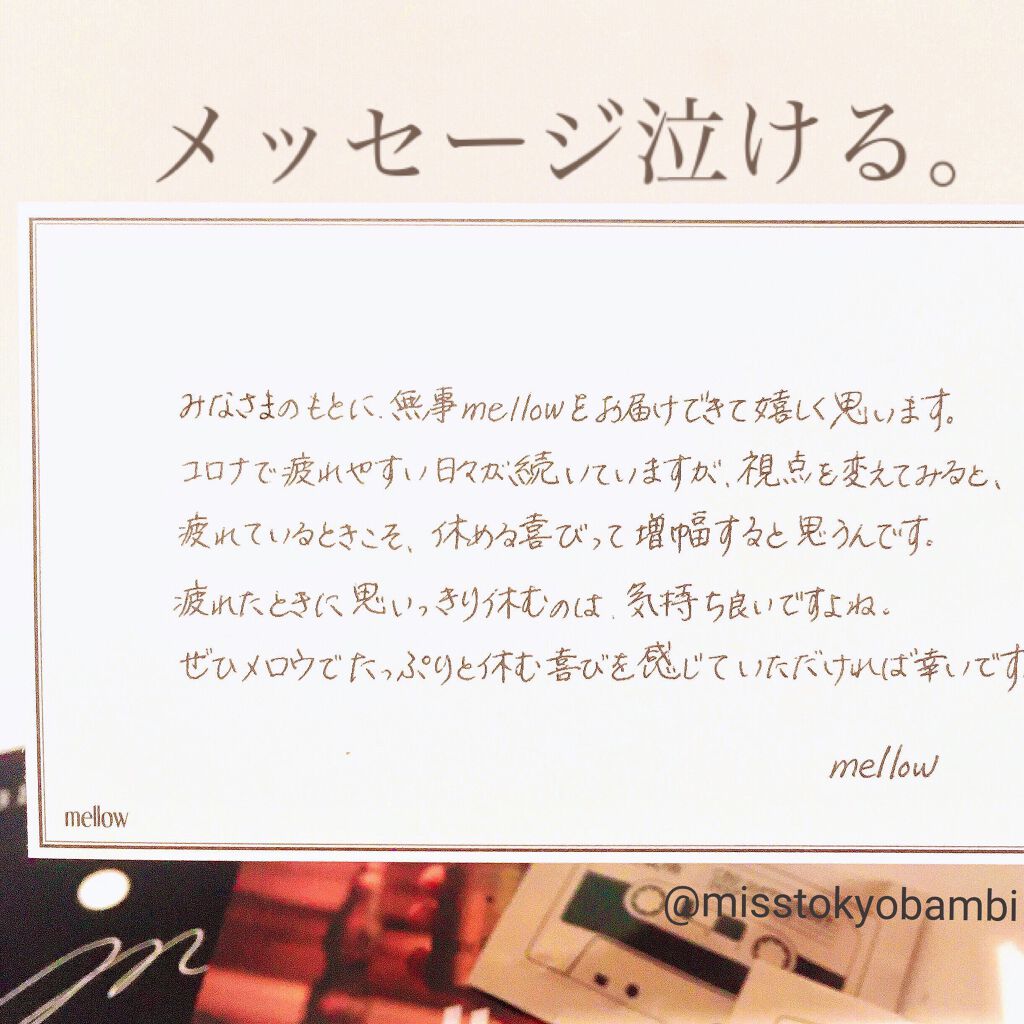 メッセージ泣ける。
みなさまのもとに、無事mellowをお届けできて嬉しく思います。
コロナで疲れやすい日々が続いていますが、視点を変えてみると、
疲れているときこそ、休める喜びって増幅すると思うんです。
疲れたときに思いっきり休むのは、気持ち良いですよね。
ぜひメロウでたっぷりと休む喜びを感じていただければ幸いです
mellow
mellow
@misstokyobambi